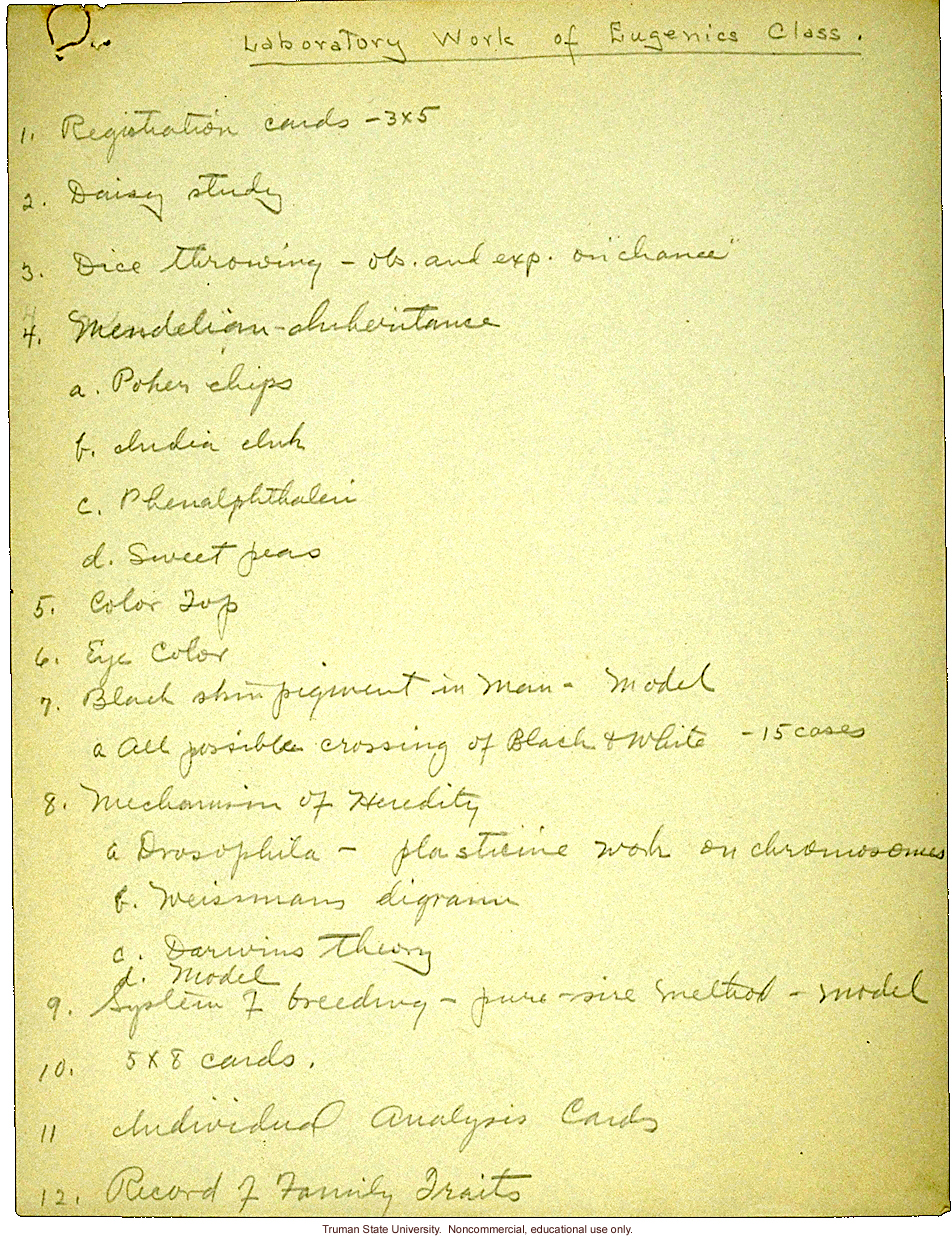 Laboratory Work of Eugenics Class.
1. Registration cards - 3x5
2. Daisy study
3. Dice throwing - obs. and exp. on "chance"
4. Mendelian - Inheritance
a. Poker chips
b. India Ink
c. Phenalphthalein
d. Sweet peas
5. Color Top
6. Eye Color
7. Black skin pigment in Man - Model
a All possible crossing of Black & White - 15 cases
8. Mechanism of Heredity
a Drosophila - plasticine work on chromosomes
b. Weissmans digram
c. Darwins theory
d. Model
9. System of breeding - pure-sire method - model
10. 5 X 8 cards.
11 Individual Analysis Cards
12. Record of Family Traits
Truman State University. Noncommercial, educational use only.